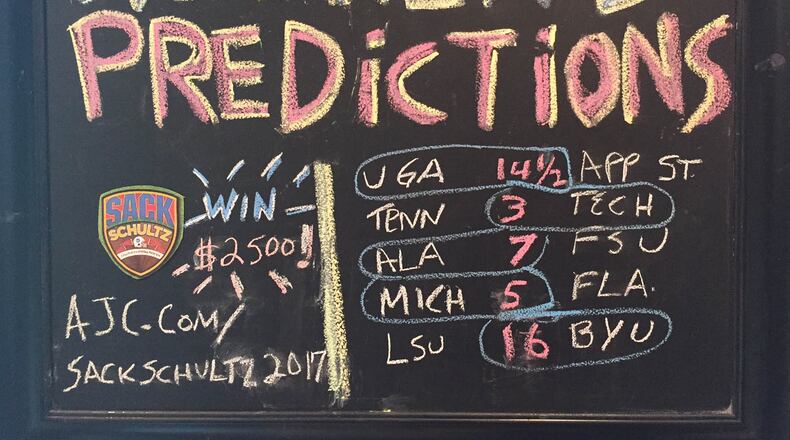 PREDiCTiONS
SACK
SCHULTZ
WIN
$2500!
AJC.COM/
SACKSCHULTZ2017
UGA 14½ APP ST.
TENN 3 TECH
ALA 7 FSU
MICH 5 FLA.
LSU 16 BYU